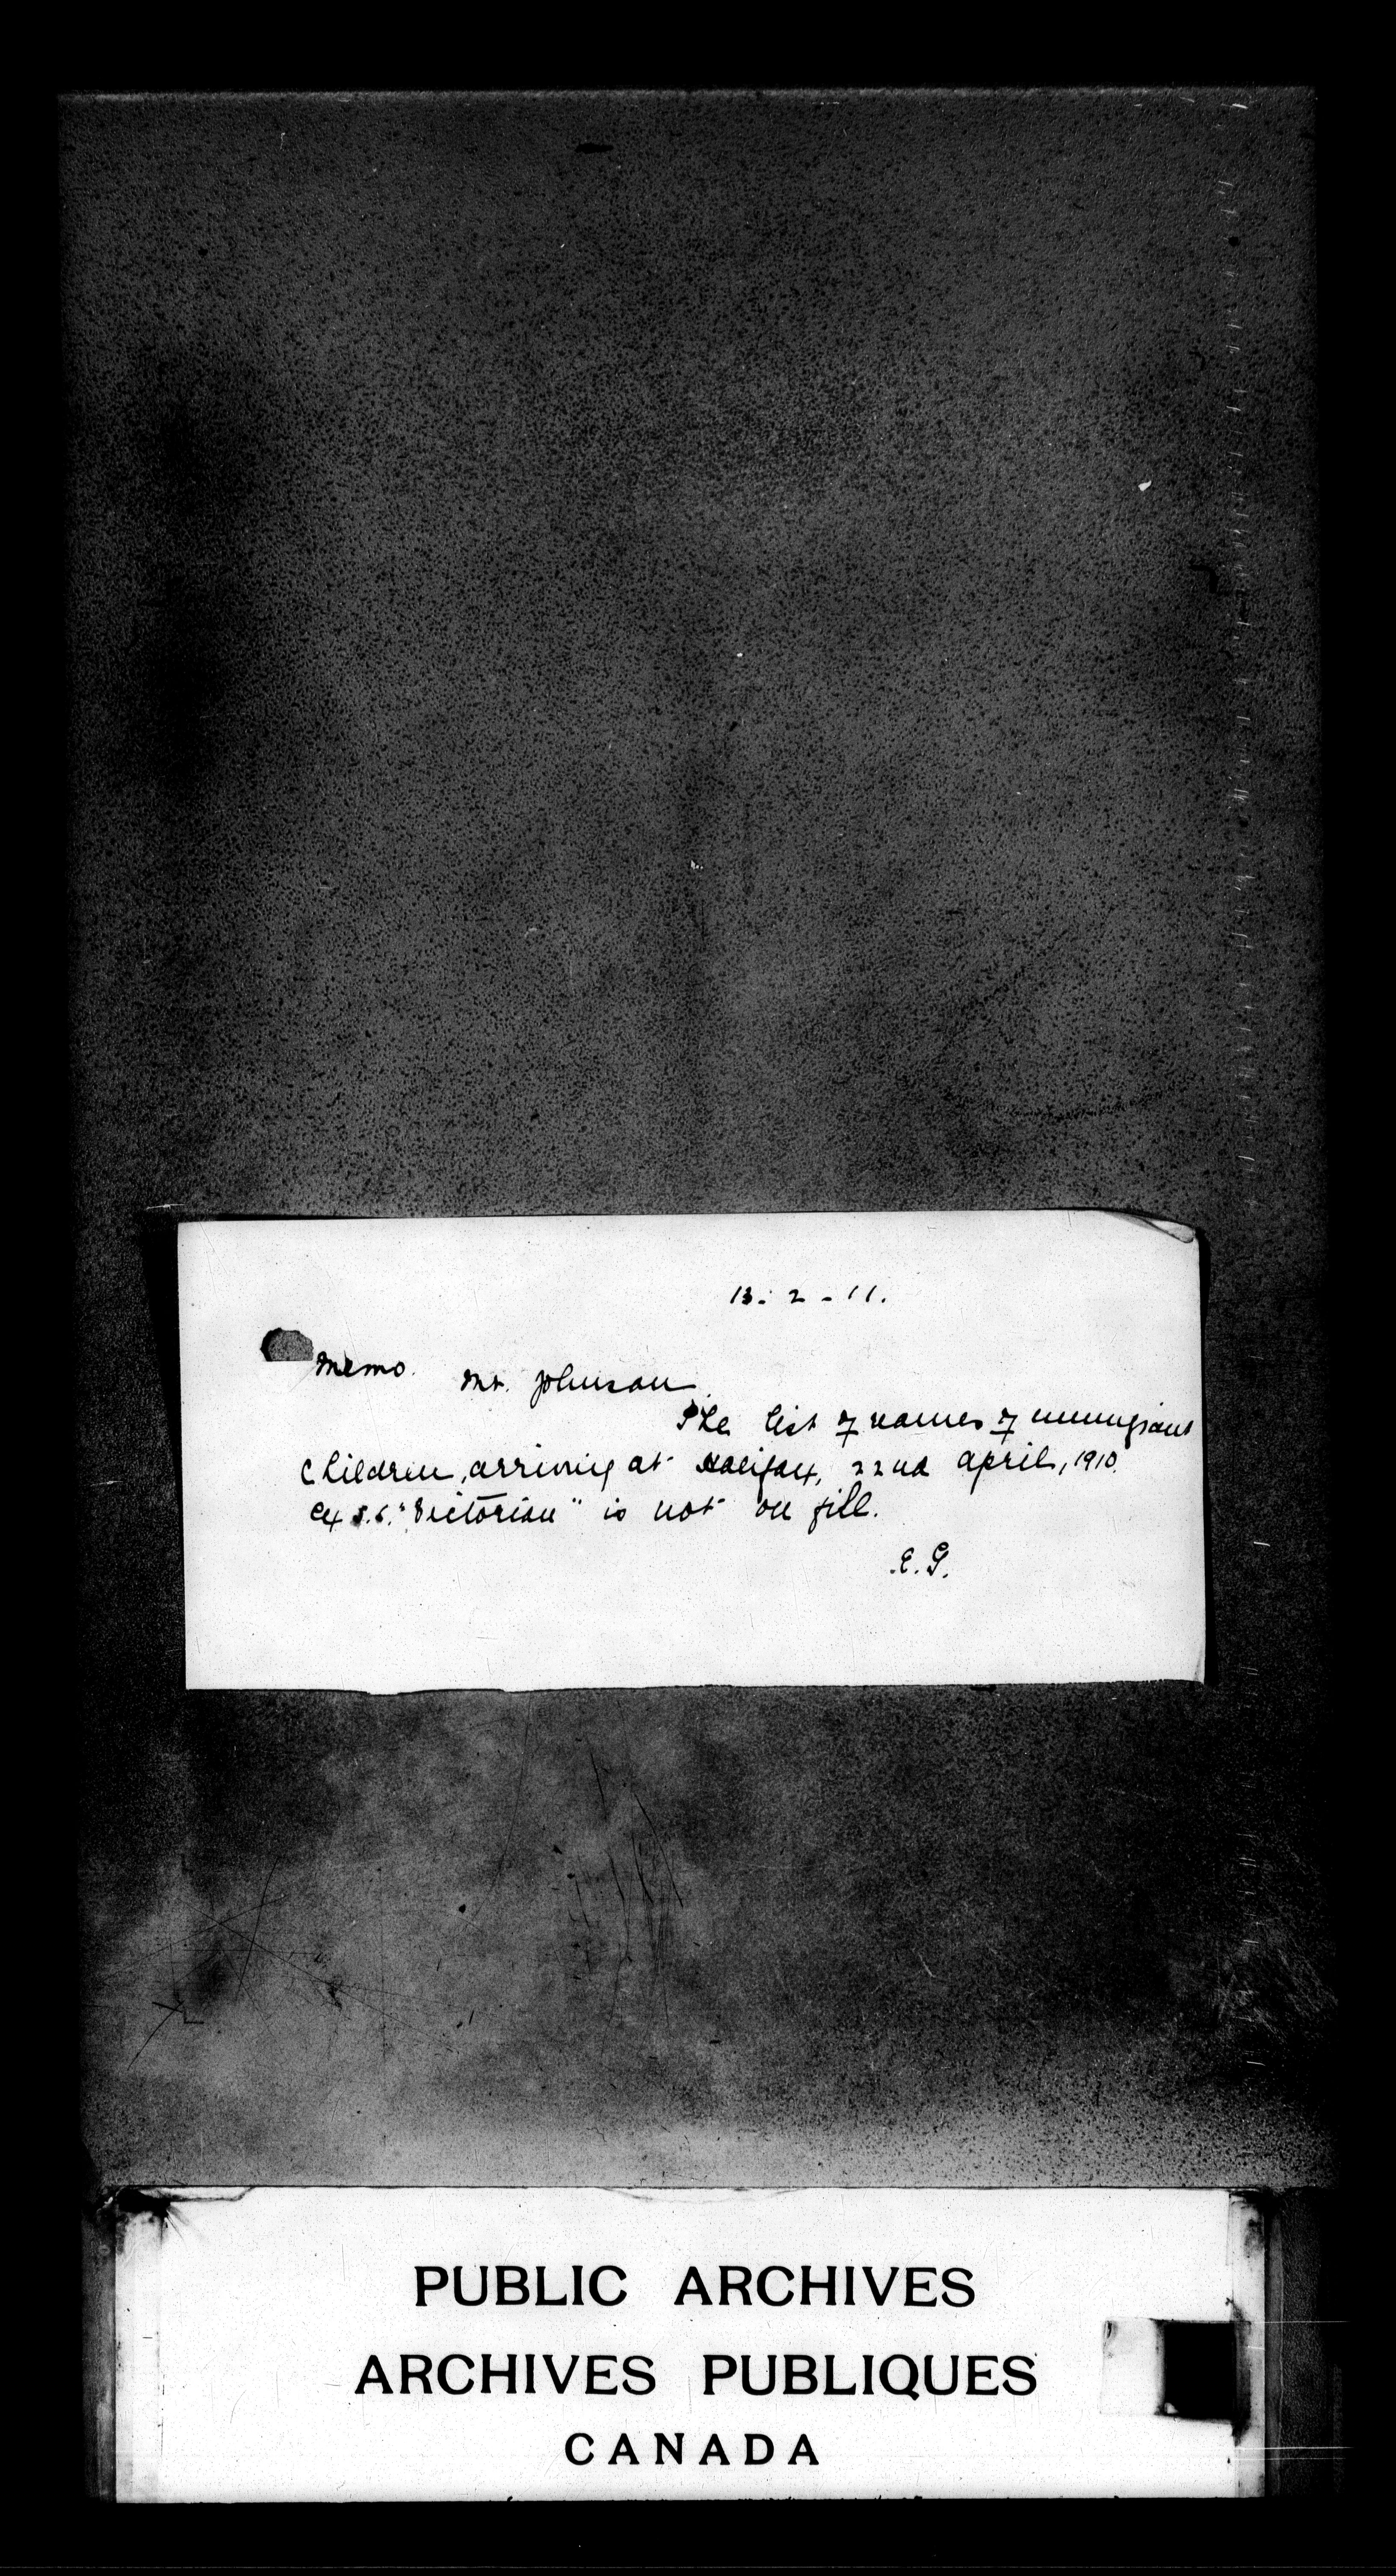 13-2-11.
Memo.
Mr. Johnson.
The list of names of immigrant
children, arriving at Halifax, 22nd April, 1910.
ex S.S. "Victorian" is not on file.
E.G.
PUBLIC ARCHIVES
ARCHIVES PUBLIQUES
CANADA